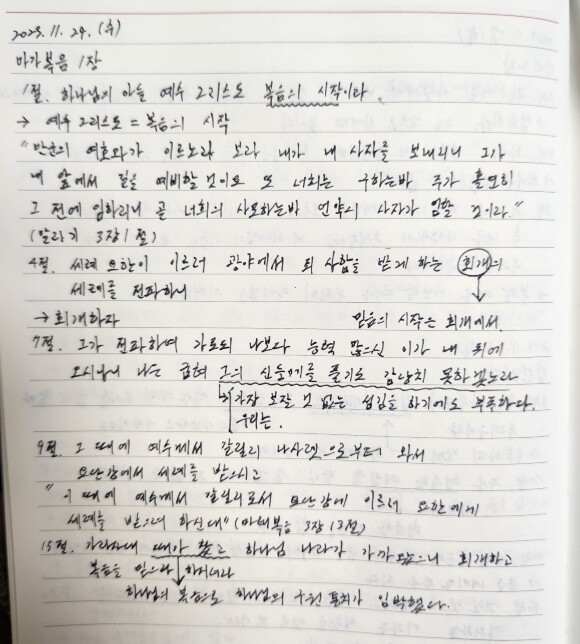 2023. 11. 29. (수)
마가복음 1장
1절. 하나님의 아들 예수 그리스도 복음의 시작이라.
→ 예수 그리스도 = 복음의 시작
"만군의 여호와가 이르노라 보라 내가 내 사자를 보내리니 그가
내 앞에서 길을 예비할 것이요 또 너희는 구하는바 주가 홀연히
그 전에 임하리니 곧 너희의 사모하는바 언약의 사자가 임할 것이라."
(말라기 3장 1절)
4절. 세례 요한이 이르러 광야에서 죄 사함을 받게 하는 회개의
세례를 전파하니
→ 회개하자
믿음의 시작은 회개에서.
7절. 그가 전파하여 가로되 나보다 능력 많으신 이가 내 뒤에
오시나니 나는 굽혀 그의 신들메를 풀기도 감당치 못하겠노라
가장 보잘 것 없는 섬김을 하기에도 부족하다.
우리는.
9절. 그 때에 예수께서 갈릴리 나사렛으로부터 와서
요단강에서 세례를 받으시고
"이 때에 예수께서 갈릴리로서 요단강에 이르러 요한에게
세례를 받으려 하신대" (마태복음 3장 13절)
15절. 가라사대 때가 찼고 하나님 나라가 가까왔으니 회개하고
복음을 믿으라 하시더라
하나님의 복음으로 하나님의 구원 통치가 임박했다.